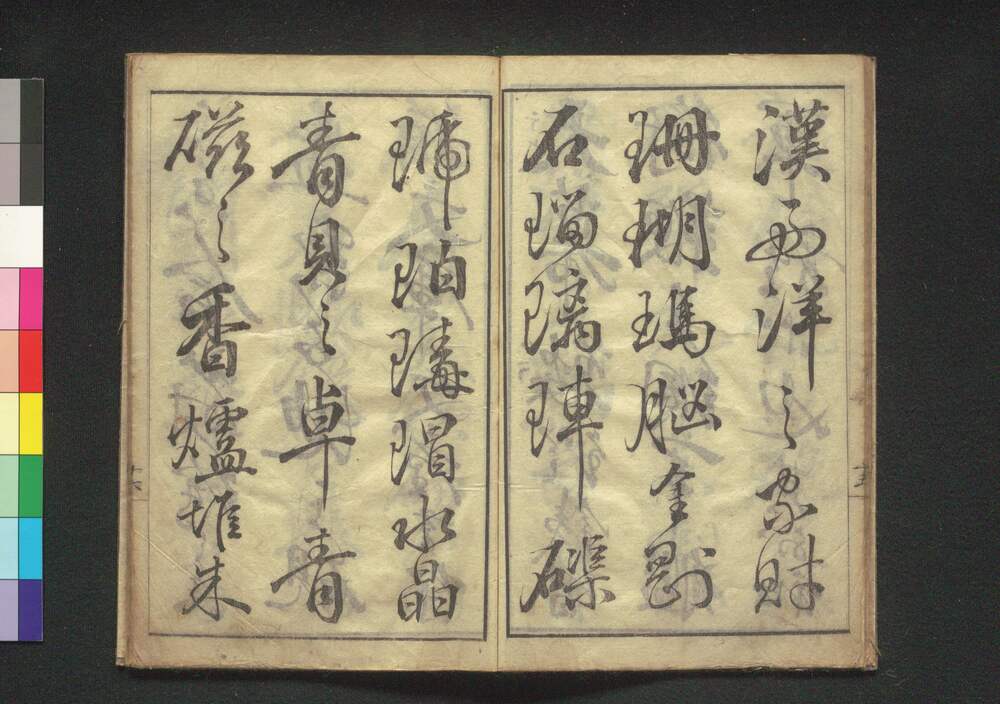 漢西洋之家財
珊瑚瑪脳金剛
石瑠璃硨磲
琥珀瑇瑁水晶
青貝之卓青
磁之香爐堆朱
十五
十六